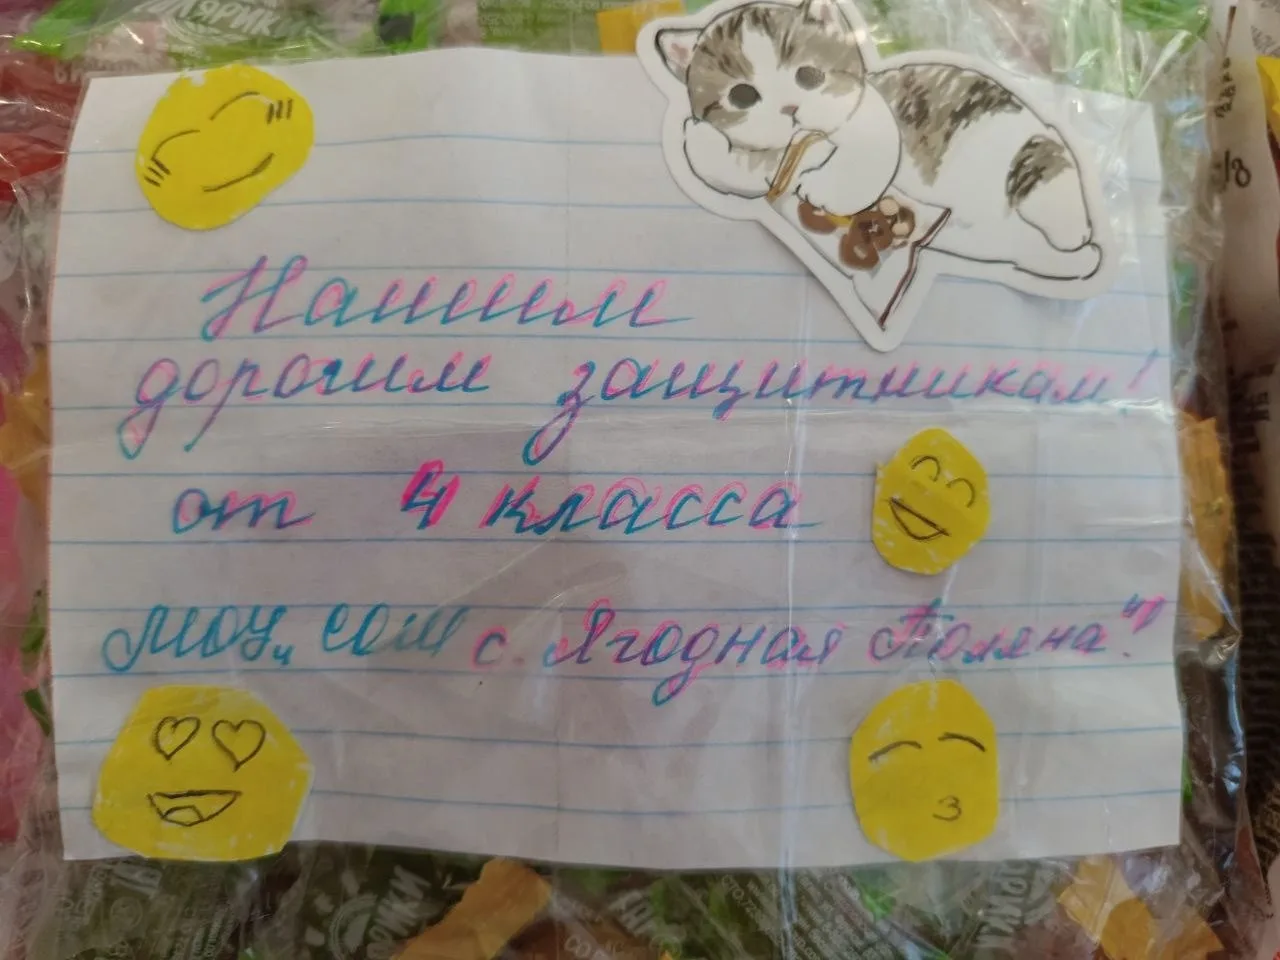 Нашим
дорогим защитникам!
от 4 класса
МОУ „СОШ с. Ягодная Поляна"